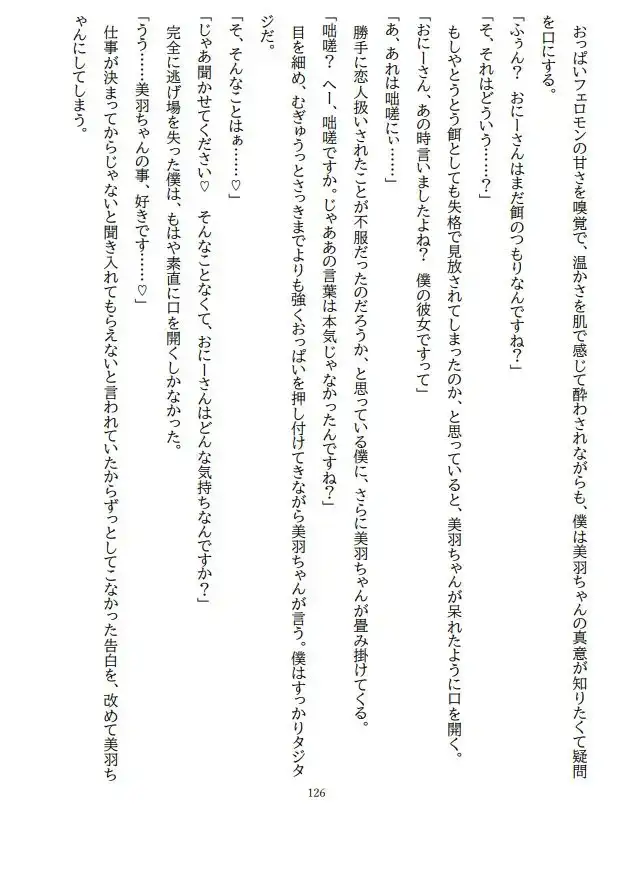 おっぱいフェロモンの甘さを嗅覚で、温かさを肌で感じて酔わされながらも、僕は美羽ちゃんの真意が知りたくて疑問
を口にする。
「ふぅん？　おにーさんはまだ餌のつもりなんですね？」
「そ、それはどういう……？」
もしやとうとう餌としても失格で見放されてしまったのか、と思っていると、美羽ちゃんが呆れたように口を開く。
「おにーさん、あの時言いましたよね？　僕の彼女ですって」
「あ、あれは咄嗟にぃ……」
勝手に恋人扱いされたことが不服だったのだろうか、と思っている僕に、さらに美羽ちゃんが畳み掛けてくる。
「咄嗟？　へー、咄嗟ですか。じゃああの言葉は本気じゃなかったんですね？」
目を細め、むぎゅうっとさっきまでよりも強くおっぱいを押し付けてきながら美羽ちゃんが言う。僕はすっかりタジタ
ジだ。
「そ、そんなことはぁ……♡」
「じゃあ聞かせてください♡　そんなことなくて、おにーさんはどんな気持ちなんですか？」
完全に逃げ場を失った僕は、もはや素直に口を開くしかなかった。
「うう……美羽ちゃんの事、好きです……♡」
仕事が決まってからじゃないと聞き入れてもらえないと言われていたからずっとしてこなかった告白を、改めて美羽ち
ゃんにしてしまう。
126